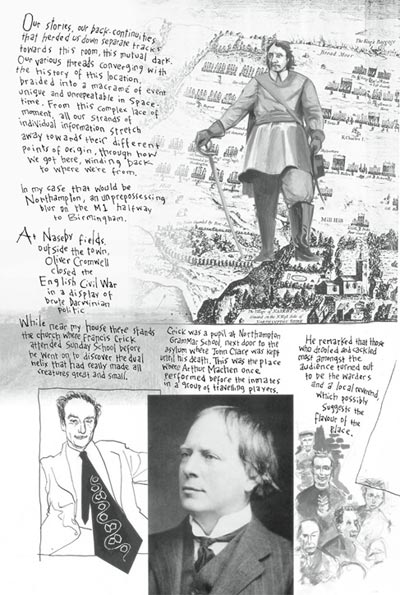 Our stories, our back-continuities
that herded us down separate tracks
towards this room, this mutual dark.
Our various threads converging with
the history of this location,
braided into a macramé of event
unique and unrepeatable in space,
time. From this complex lace of
moment, all our strands of
individual information stretch
away towards their different
points of origin, through how
we got here, winding back
to where we're from.
In my case that would be
Northampton, an unprepossessing
blur on the M1 halfway
to Birmingham.
At Naseby fields,
outside the town,
Oliver Cromwell
closed the
English Civil War
in a display of
brute Darwinian
politic
While near my house there stands
the church where Francis Crick
attended Sunday School before
he went on to discover the dual
helix that had really made all
creatures great and small.
Crick was a pupil at Northampton
Grammar School, next door to the
asylum where John Clare was kept
until his death. This was the place
where Arthur Machen once
performed before the inmates
in a group of travelling players.
He remarked that those
who drooled and cackled
most amongst the
audience turned out
to be the warders
and a local coverred,
which possibly
suggests the
flavour of the
place.
Broad Moor
Mill Hill
NORTHAMPTON SHIRE